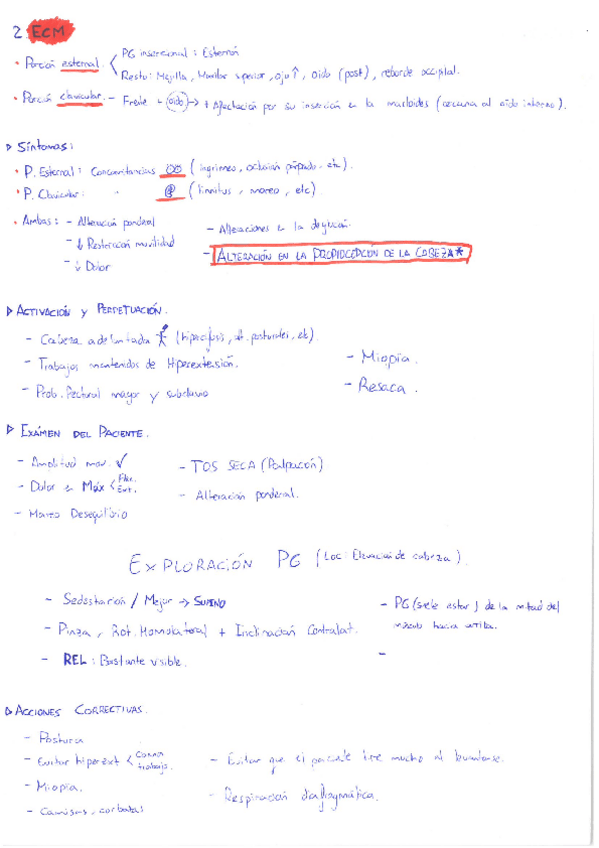 2. ECM
• Porción esternal. < PG insercional: Esternón
Resto: Mejilla, Maxilar superior, ojo ↑, oido (post), reborde occipital.
• Porción clavicular. - Frente + (oido) → + Afectación por su inserción en la mastoides (cercana al oido interno).
▷ Síntomas:
• P. Esternal: Concomitancias (lagrimeo, oclusión párpado, etc).
• P. Clavicular: " (tinnitus, mareo, etc)
• Ambas: - Alteración ponderal
- ↓ Restricción movilidad
- ↓ Dolor
- Alteraciones en la deglución.
- ALTERACIÓN EN LA PROPIOCEPCION DE LA CABEZA*
▷ ACTIVACIÓN Y PERPETUACIÓN.
- Cabeza adelantada (hipercifosis, alt. posturales, etc).
- Trabajos mantenidos de Hiperextensión.
- Prob. Pectoral mayor y subclavio
- Miopía.
- Resaca.
▷ EXÁMEN DEL PACIENTE.
- Amplitud mov. ✓
- Dolor en Máx < Flex. Ext.
- Mareo Desequilibrio
- TOS SECA (Palpación)
- Alteración ponderal.
EXPLORACIÓN PG (Loc: Elevación de cabeza).
- Sedestación / Mejor → SUPINO
- Pinza, Rot. Homolateral + Inclinación Contralat.
- REL: Bastante visible.
- PG (suele estar) de la mitad del
músculo hacia arriba.
-
▷ ACCIONES CORRECTIVAS.
- Postura
- Evitar hiperext < Cama trabajo.
- Miopía.
- Camisas, corbatas
- Evitar que el paciente tire mucho al levantarse.
- Respiración diafragmática.